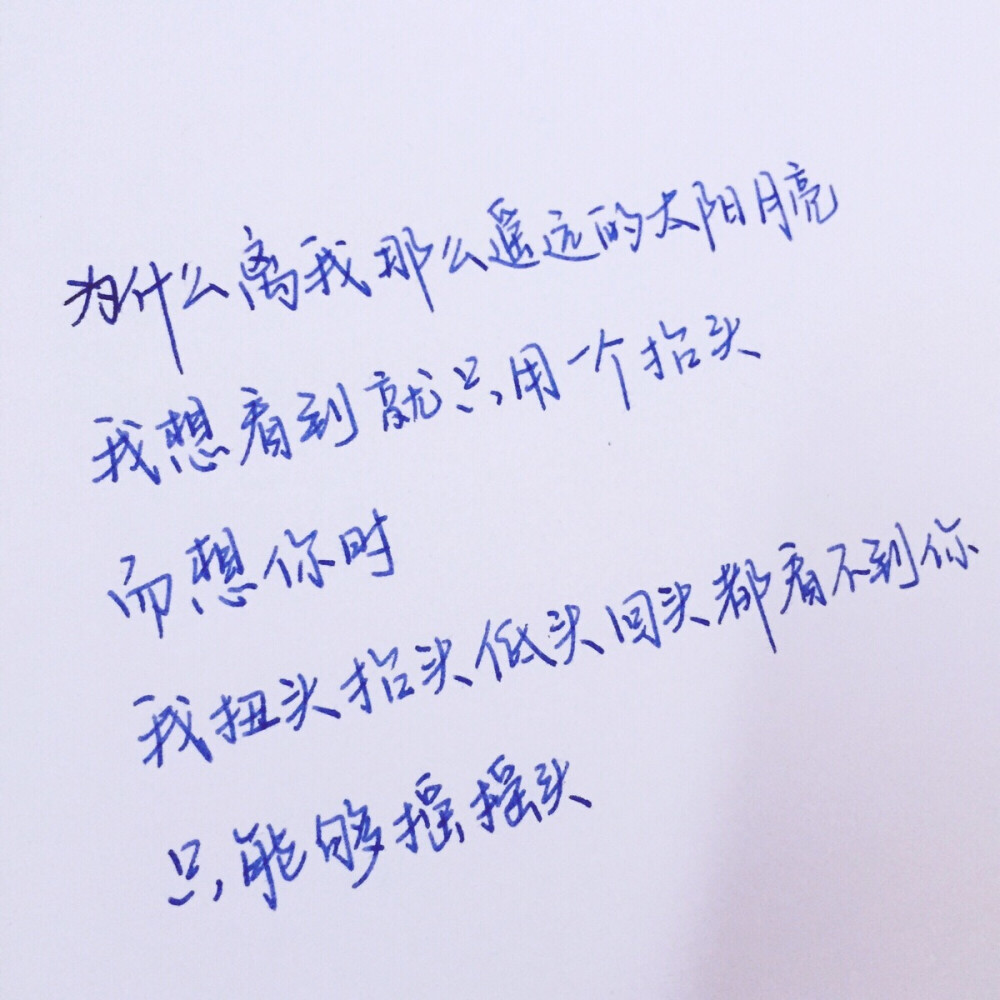 为什么离我那么遥远的太阳月亮
我想看到就只用一个抬头
而想你时
我扭头抬头低头回头都看不到你
只能够摇摇头